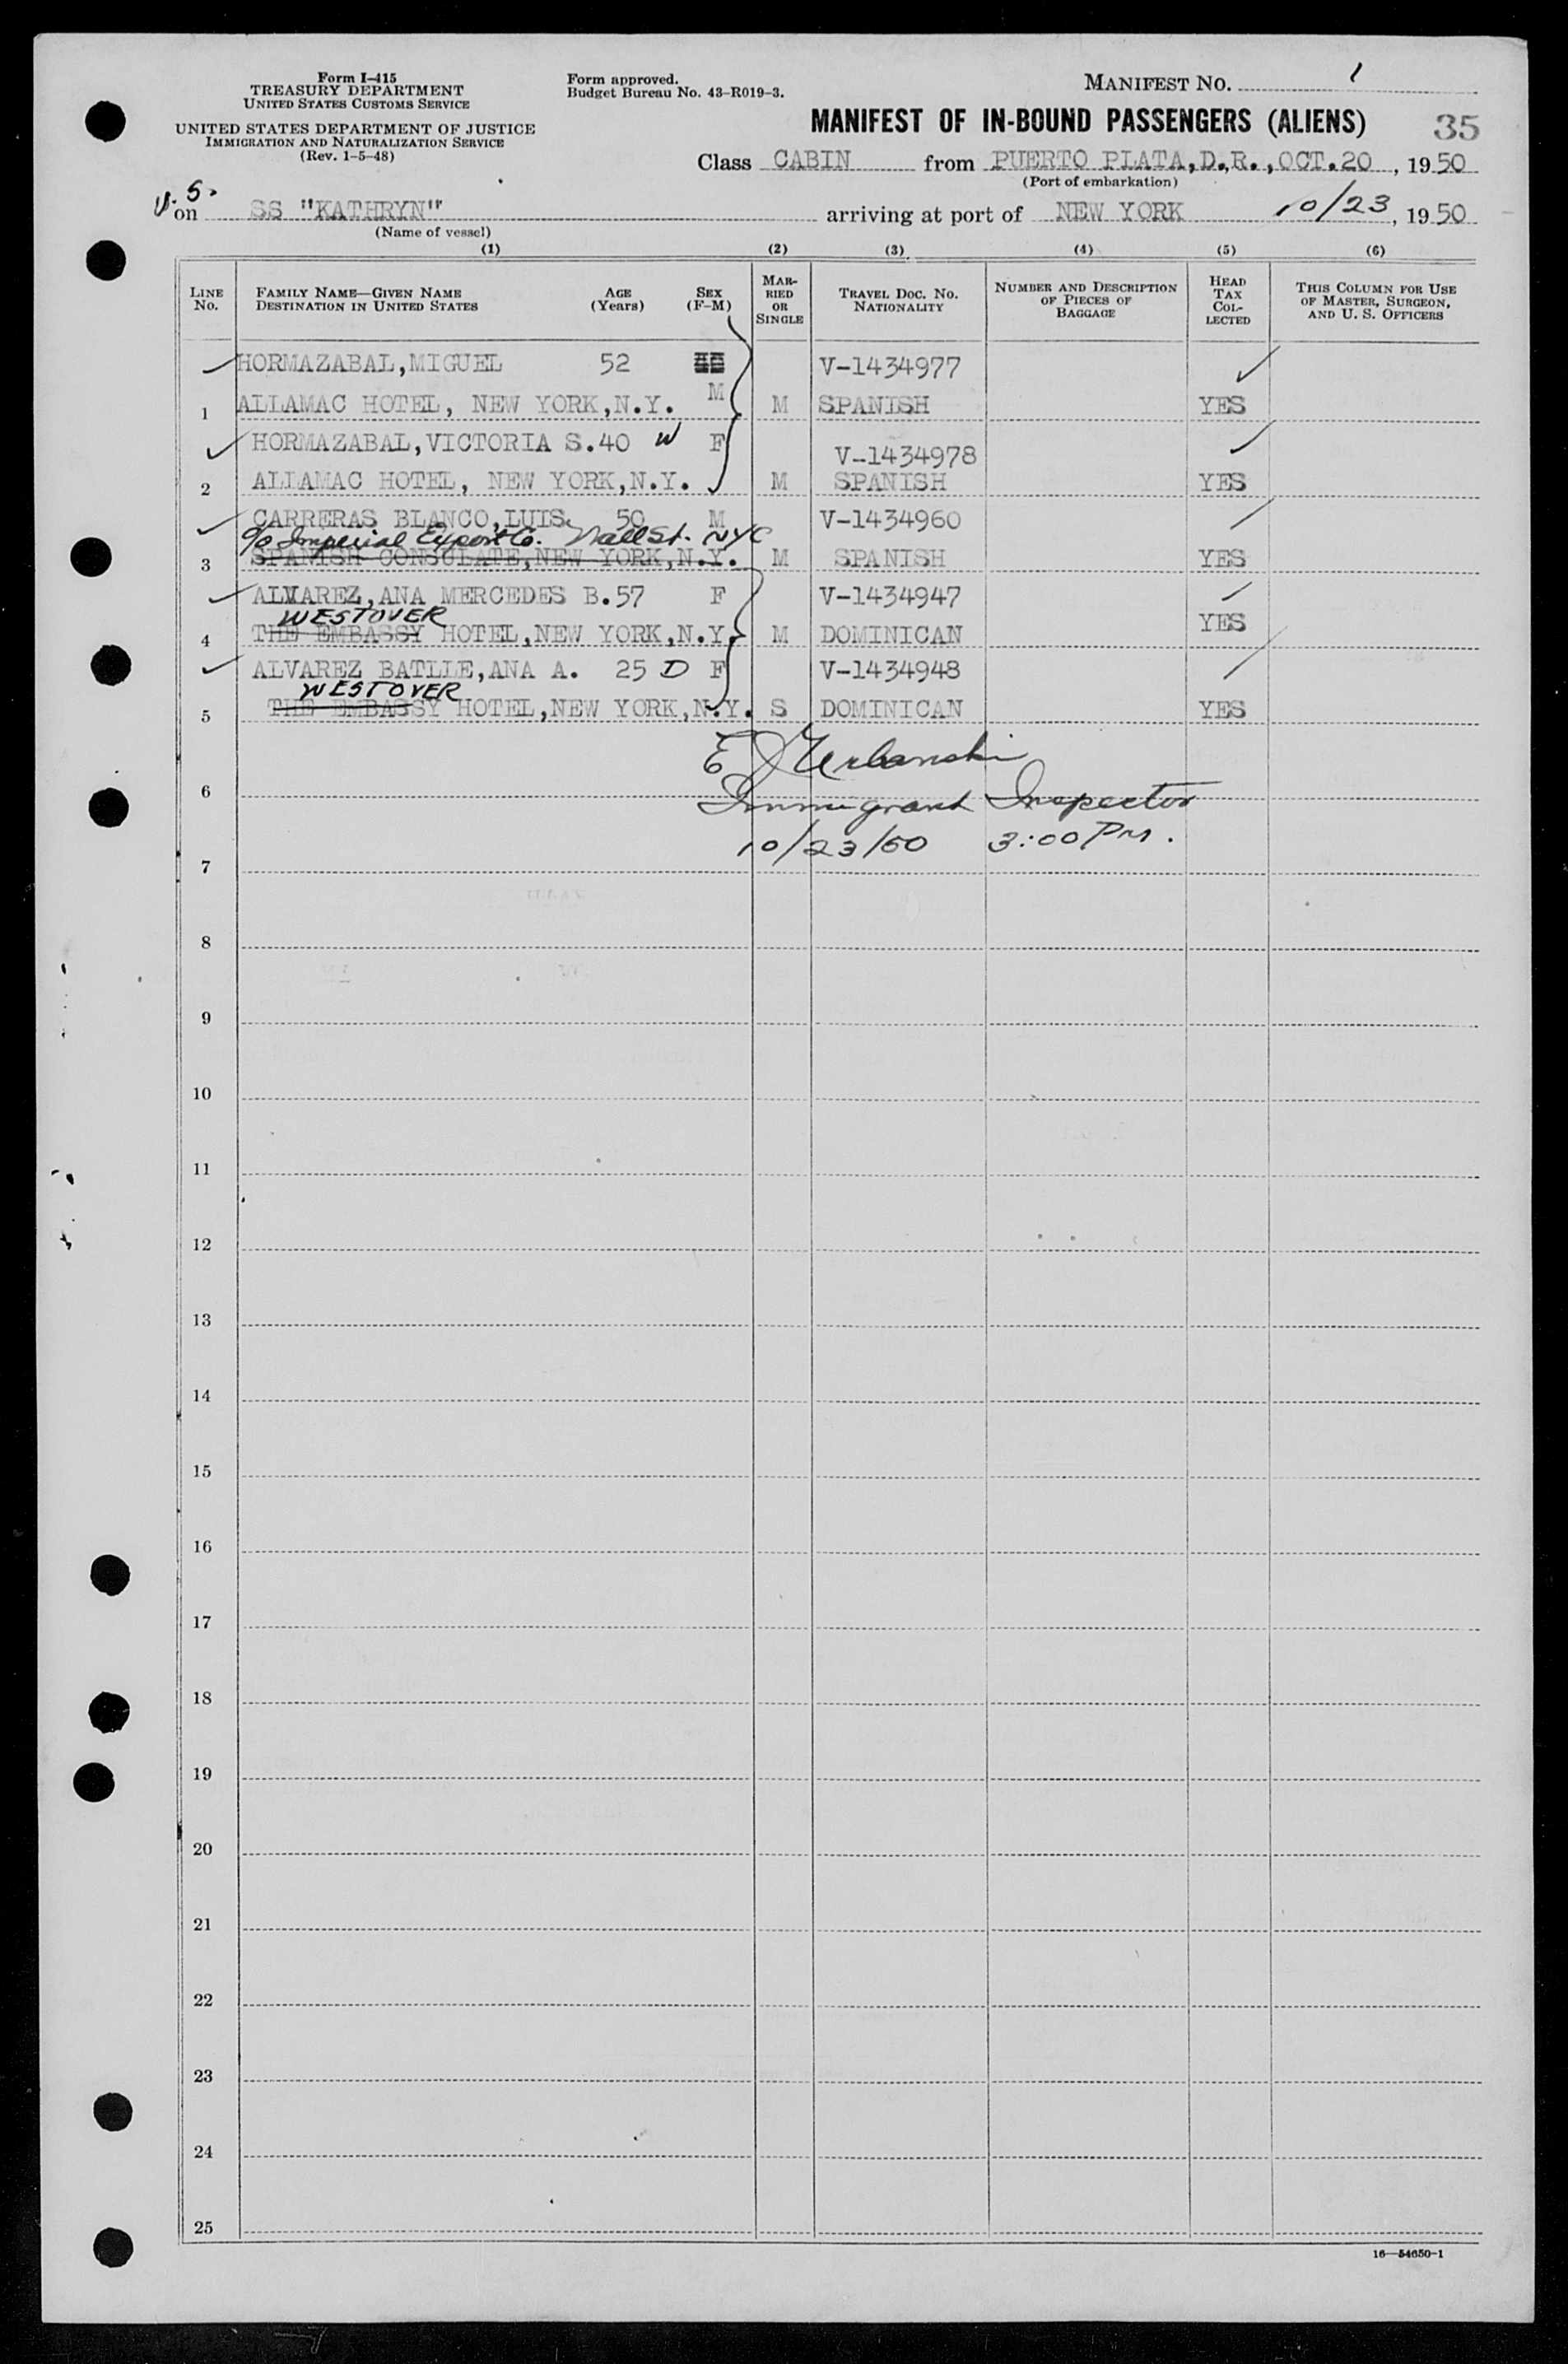 Form I-415
TREASURY DEPARTMENT
UNITED STATES CUSTOMS SERVICE
UNITED STATES DEPARTMENT OF JUSTICE
IMMIGRATION AND NATURALIZATION SERVICE
(Rev. 1-5-48)
Form approved.
Budget Bureau No. 43-R019-3.
MANIFEST NO. 1
MANIFEST OF IN-BOUND PASSENGERS (ALIENS) 35
Class CABIN from PUERTO PLATA, D.R., OCT. 20, 1950
(Port of embarkation)
U.S.
on SS "KATHRYN" arriving at port of NEW YORK 10/23, 1950
(Name of vessel)
(1) (2) (3) (4) (5) (6)
LINE NO. FAMILY NAME—GIVEN NAME DESTINATION IN UNITED STATES AGE (Years) SEX (F-M) MARRIED OR SINGLE TRAVEL DOC. NO. NATIONALITY NUMBER AND DESCRIPTION OF PIECES OF BAGGAGE HEAD TAX COLLECTED THIS COLUMN FOR USE OF MASTER, SURGEON, AND U. S. OFFICERS
HORMAZABAL, MIGUEL 52 V-1434977
1 ALLAMAC HOTEL, NEW YORK, N.Y. M M SPANISH YES
HORMAZABAL, VICTORIA S. 40 W F V-1434978
2 ALLAMAC HOTEL, NEW YORK, N.Y. M SPANISH YES
CARRERAS BLANCO, LUIS 50 M V-1434960
c/o Imperial Export Co. Wall St. NYC
3 SPANISH CONSULATE, NEW YORK, N.Y. M SPANISH YES
ALVAREZ, ANA MERCEDES B. 57 F V-1434947
WESTOVER
4 THE EMBASSY HOTEL, NEW YORK, N.Y. M DOMINICAN YES
ALVAREZ BATLLE, ANA A. 25 D F V-1434948
WESTOVER
5 THE EMBASSY HOTEL, NEW YORK, N.Y. S DOMINICAN YES
E J Urbanski
6 Immigrant Inspector
10/23/50 3:00 PM.
7
8
9
10
11
12
13
14
15
16
17
18
19
20
21
22
23
24
25
16—54650-1